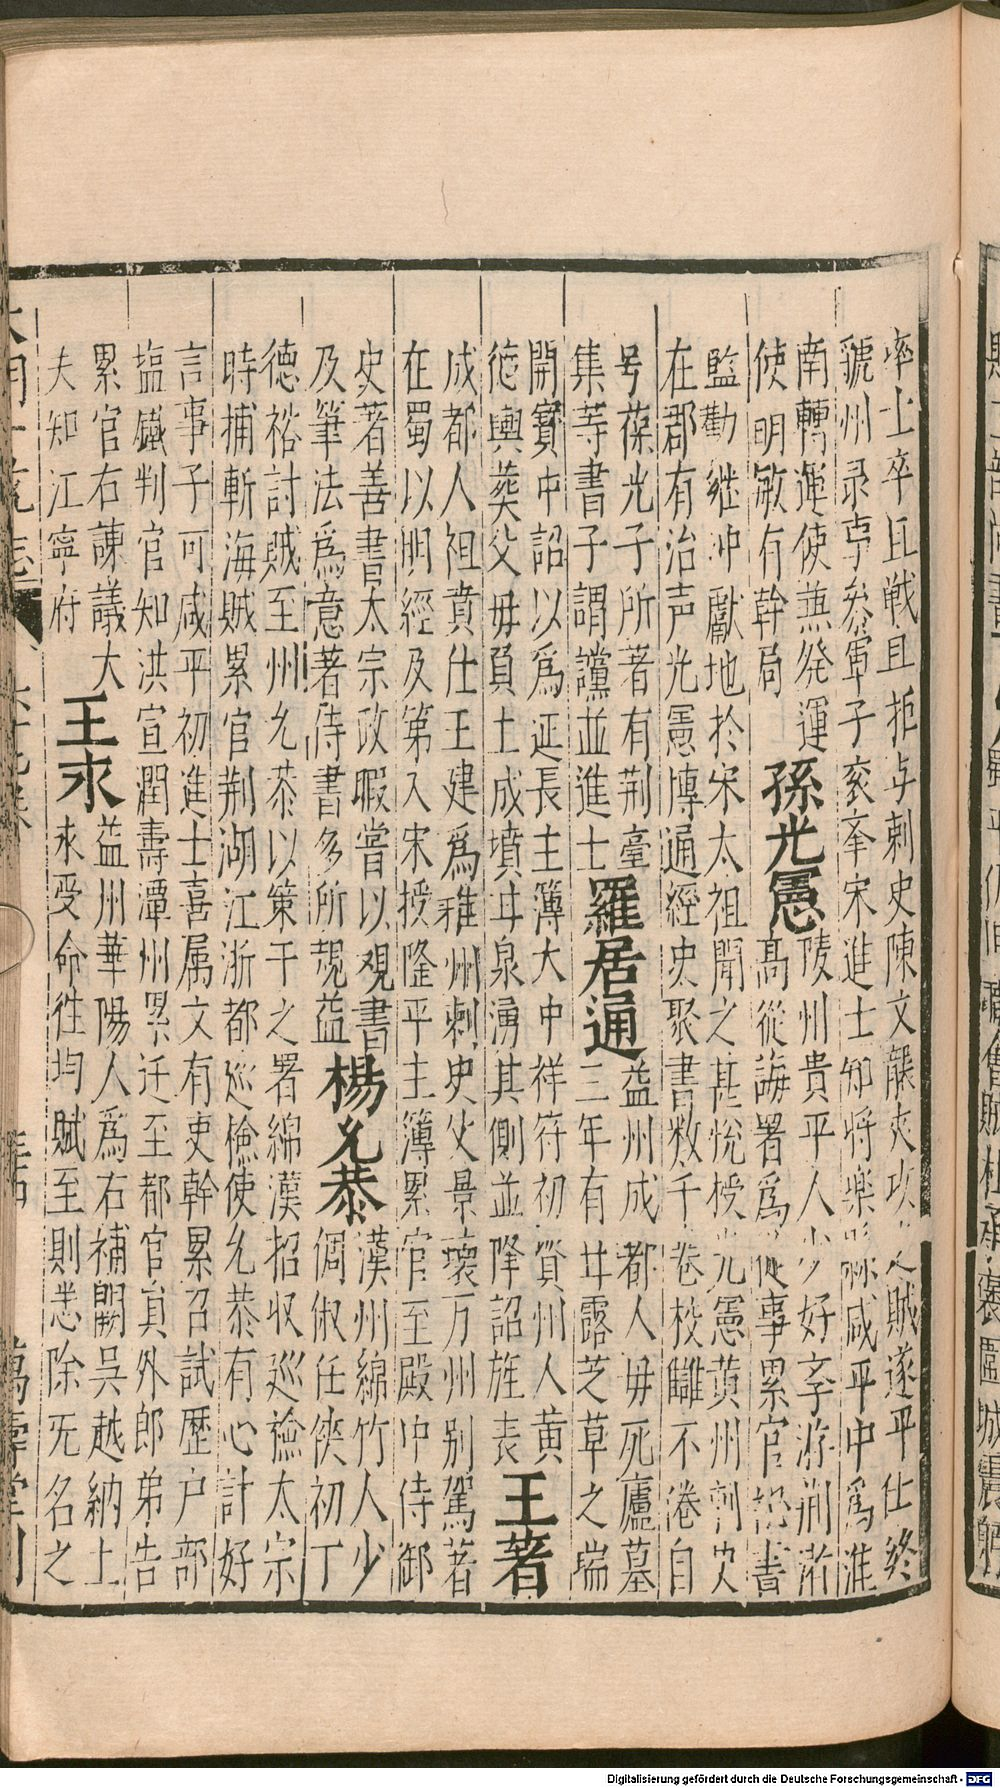 率士卒且戦且拒与刺史陳文襲夾攻之賊遂平仕終
虢州录事叅軍子衮夆宋進士知将樂咸平中爲淮
南轉運使兼発運
使明敏有幹局
孫光憲
陵州貴平人少好斈游荊渚
髙從誨署爲從事累官秘書
監勸継冲獻地於宋太祖聞之甚悅授光憲黄州刺史
在郡有治声光憲博通經史聚書数千卷校讎不倦自
号葆光子所著有荆臺
集等書子謂讜並進士
羅居通
益州成都人毋死廬墓
三年有廿露芝草之瑞
開寳中詔以爲延長主簿大中祥符初資州人黄
德輿葬父毋負土成墳廿泉湧其側並降詔旌表
王著
成都人祖賁仕王建爲雅州刺史父景壊万州别駕著
在蜀以明經及第入宋授隆平主簿累官至殿中侍御
史著善書太宗政暇嘗以觀書
及筆法爲意著侍書多所䂓益
楊允恭
漢州綿竹人少
倜俶任侠初丁
德裕討賊至州允恭以策干之署綿漢招収巡檢太宗
時捕斬海賊累官荆湖江浙都巡檢使允恭有心計好
言事子可咸平初進士喜属文有吏幹累召試歴户部
塩鐵判官知洪宣潤壽潭州累迁至都官貟外郎弟告
累官右諌議大
夫知江寧府
王求
益州華陽人爲右補闕吳越納土
求受命往均賦至則悉除无名之
萬壽堂刊
Digitalisierung gefördert durch die Deutsche Forschungsgemeinschaft - DFG